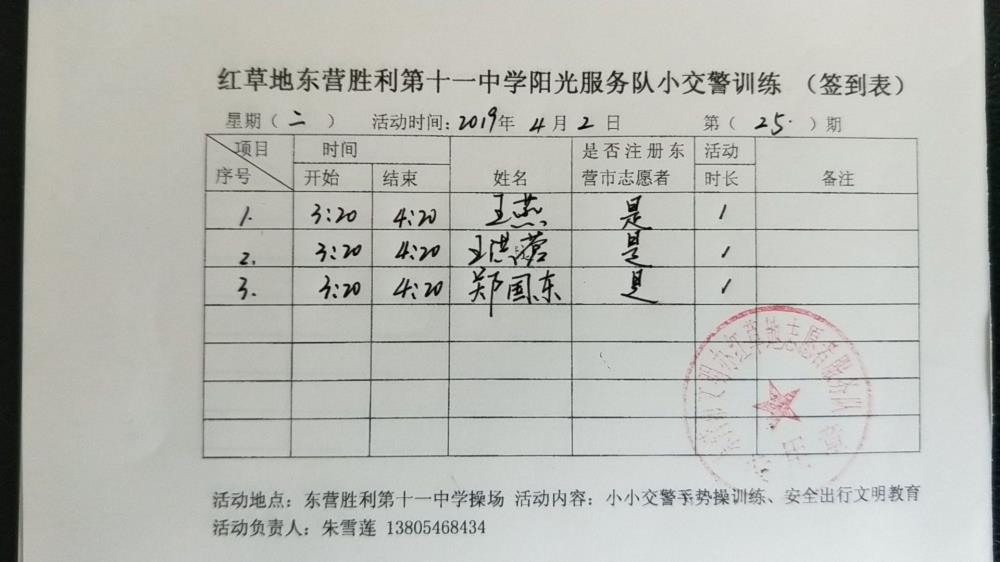 红草地东营胜利第十一中学阳光服务队小交警训练 （签到表）
星期（ 二 ） 活动时间：2019年 4月 2日 第（ 25. ）期
项目 时间 是否注册东 活动
序号 开始 结束 姓名 营市志愿者 时长 备注
1. 3:20 4:20 王燕 是 1
2. 3:20 4:20 王洪营 是 1
3. 3:20 4:20 郑国东 是 1
文明办红草地志愿者服务队
活动地点：东营胜利第十一中学操场 活动内容：小小交警手势操训练、安全出行文明教育
活动负责人：朱雪莲 13805468434